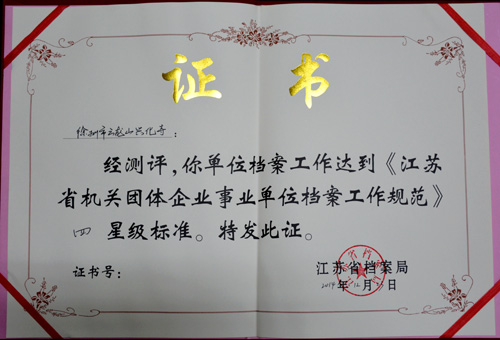 证书
徐州市云龙山兴化寺：
经测评，你单位档案工作达到《江苏
省机关团体企业事业单位档案工作规范》
四 星级标准。特发此证。
证书号：
江苏省档案局
年12月 日